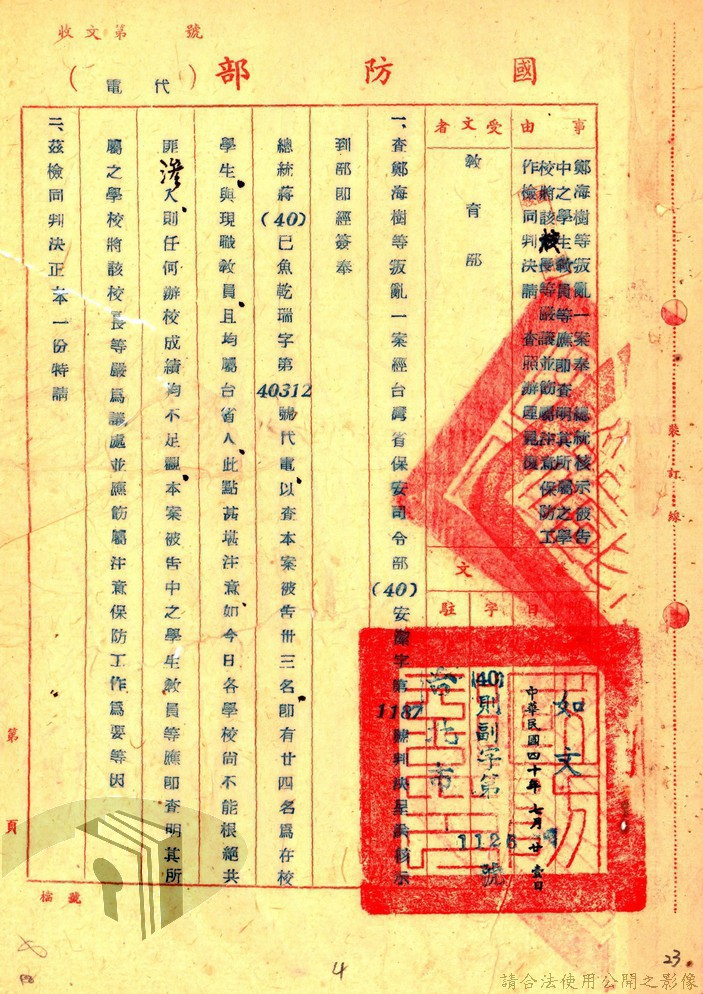 收文第 號
國防部
（代電）
事由
鄭海樹等叛亂一案奉 總統核示被告
中之學生教員等應即查明其所屬之學
校將該校長等嚴議並飭屬注意保防工
作檢同判決請 查照辦理見復
受文者
教育部
文
駐
字
日
如文
中華民國四十年七月廿壹日
(40)則副字第1126號
台北市
一、查鄭海樹等叛亂一案經台灣省保安司令部(40)安潔字第1187號判決呈 核示
到部即經簽奉
總統蔣(40)巳魚乾瑞字第40312號代電以查本案被告卅三名即有廿四名爲在校
學生與現職教員且均屬台省人此點甚堪注意如今日各學校尚不能根絕共
匪滲入則任何辦校成績均不足觀本案被告中之學生教員等應即查明其所
屬之學校將該校長等嚴爲議處並應飭屬注意保防工作爲要等因
二、茲檢同判決正本一份特請
裝訂線
第 頁
檔號
4
23
請合法使用公開之影像